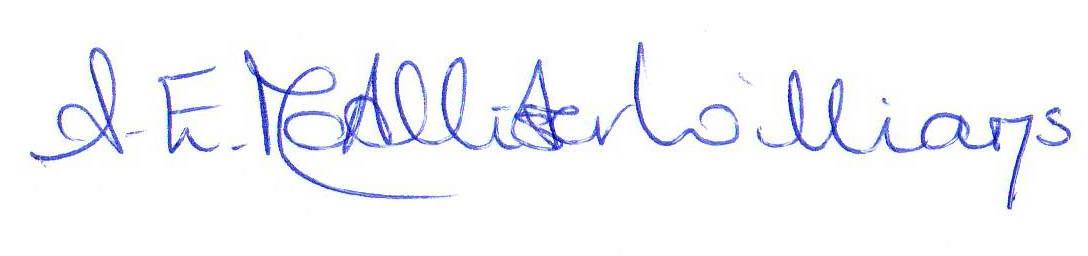 S. E. McAllister Williams